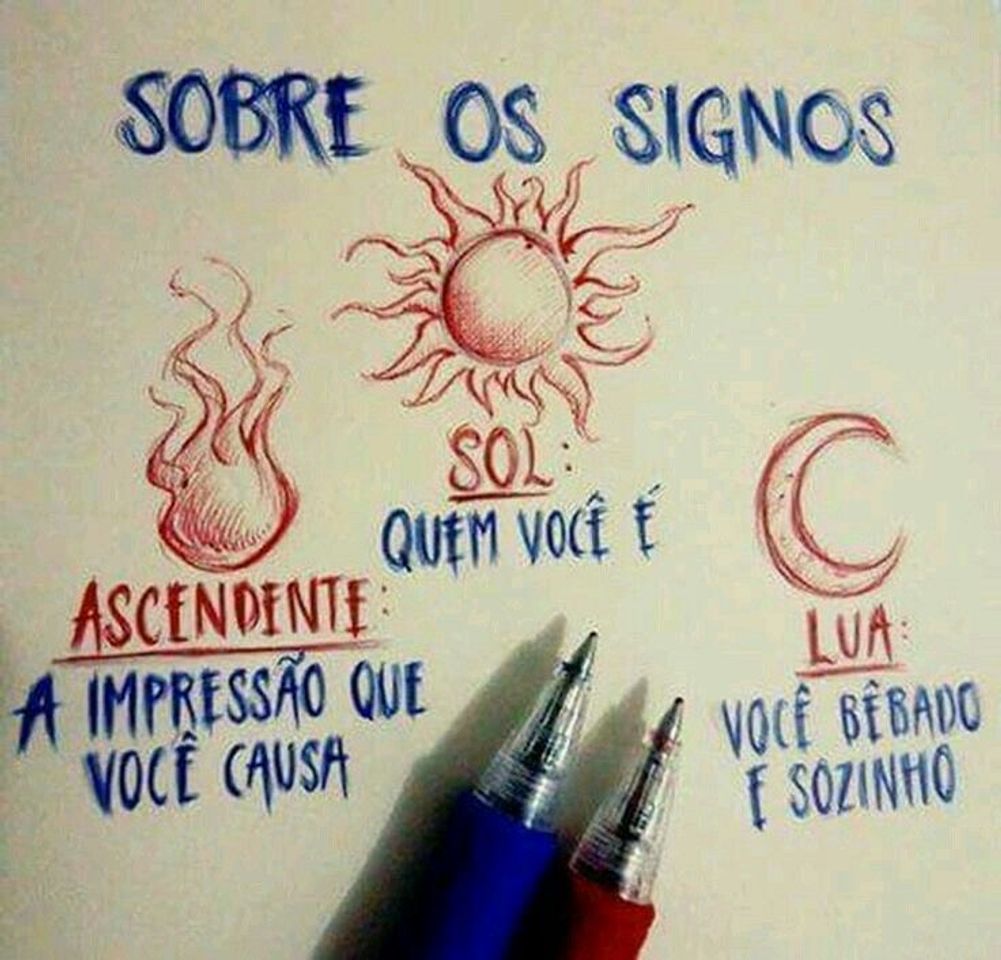 SOBRE OS SIGNOS
SOL:
QUEM VOCÊ É
ASCENDENTE:
A IMPRESSÃO QUE
VOCÊ CAUSA
LUA:
VOCÊ BÊBADO
E SOZINHO